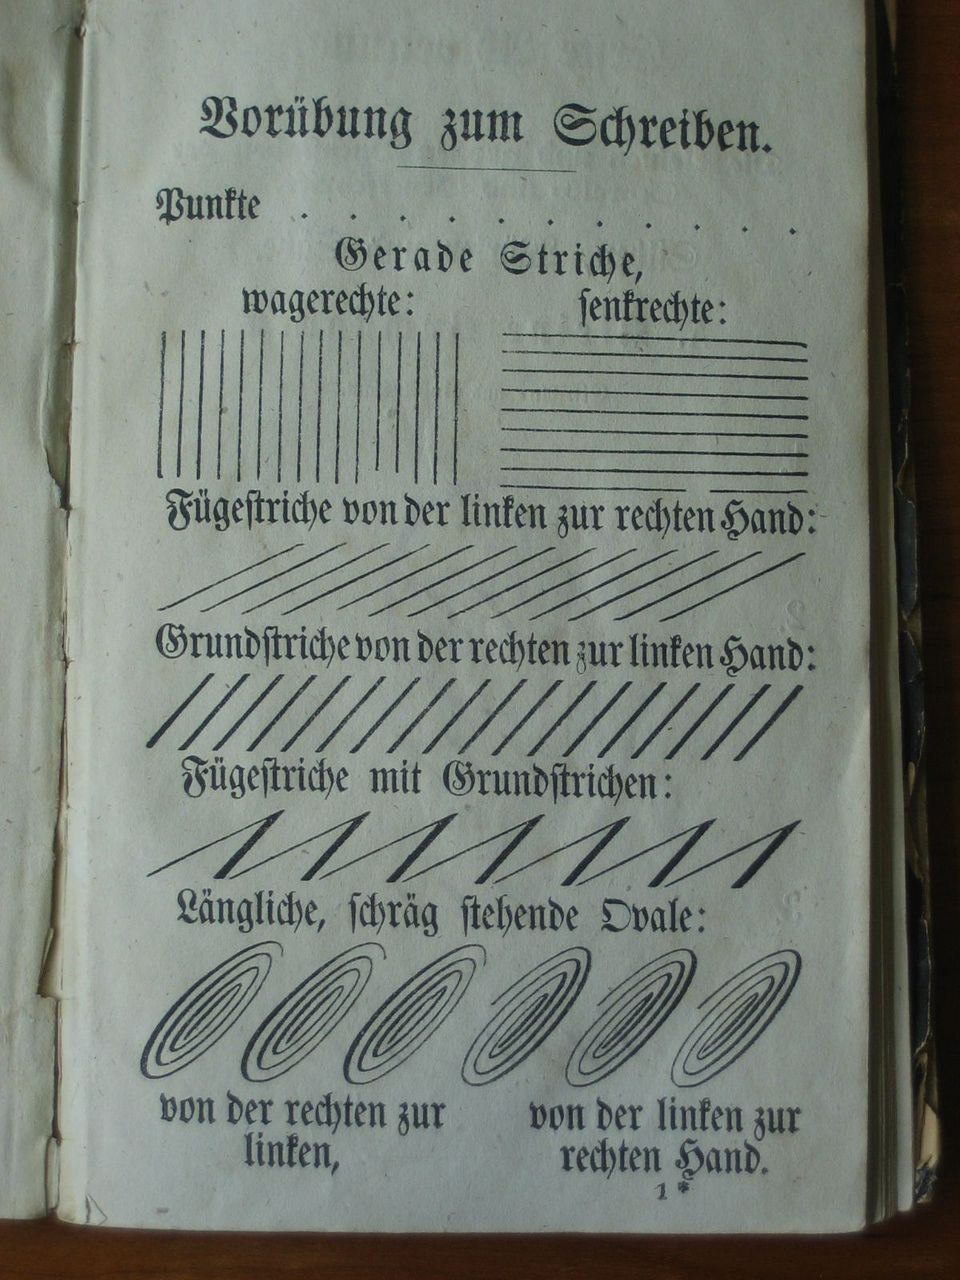 Vorübung zum Schreiben.
Punkte . . . . . . . . . . .
Gerade Striche,
wagerechte: senkrechte:
Fügestriche von der linken zur rechten Hand:
Grundstriche von der rechten zur linken Hand:
Fügestriche mit Grundstrichen:
Längliche, schräg stehende Ovale:
von der rechten zur
linken,
von der linken zur
rechten Hand.
1*